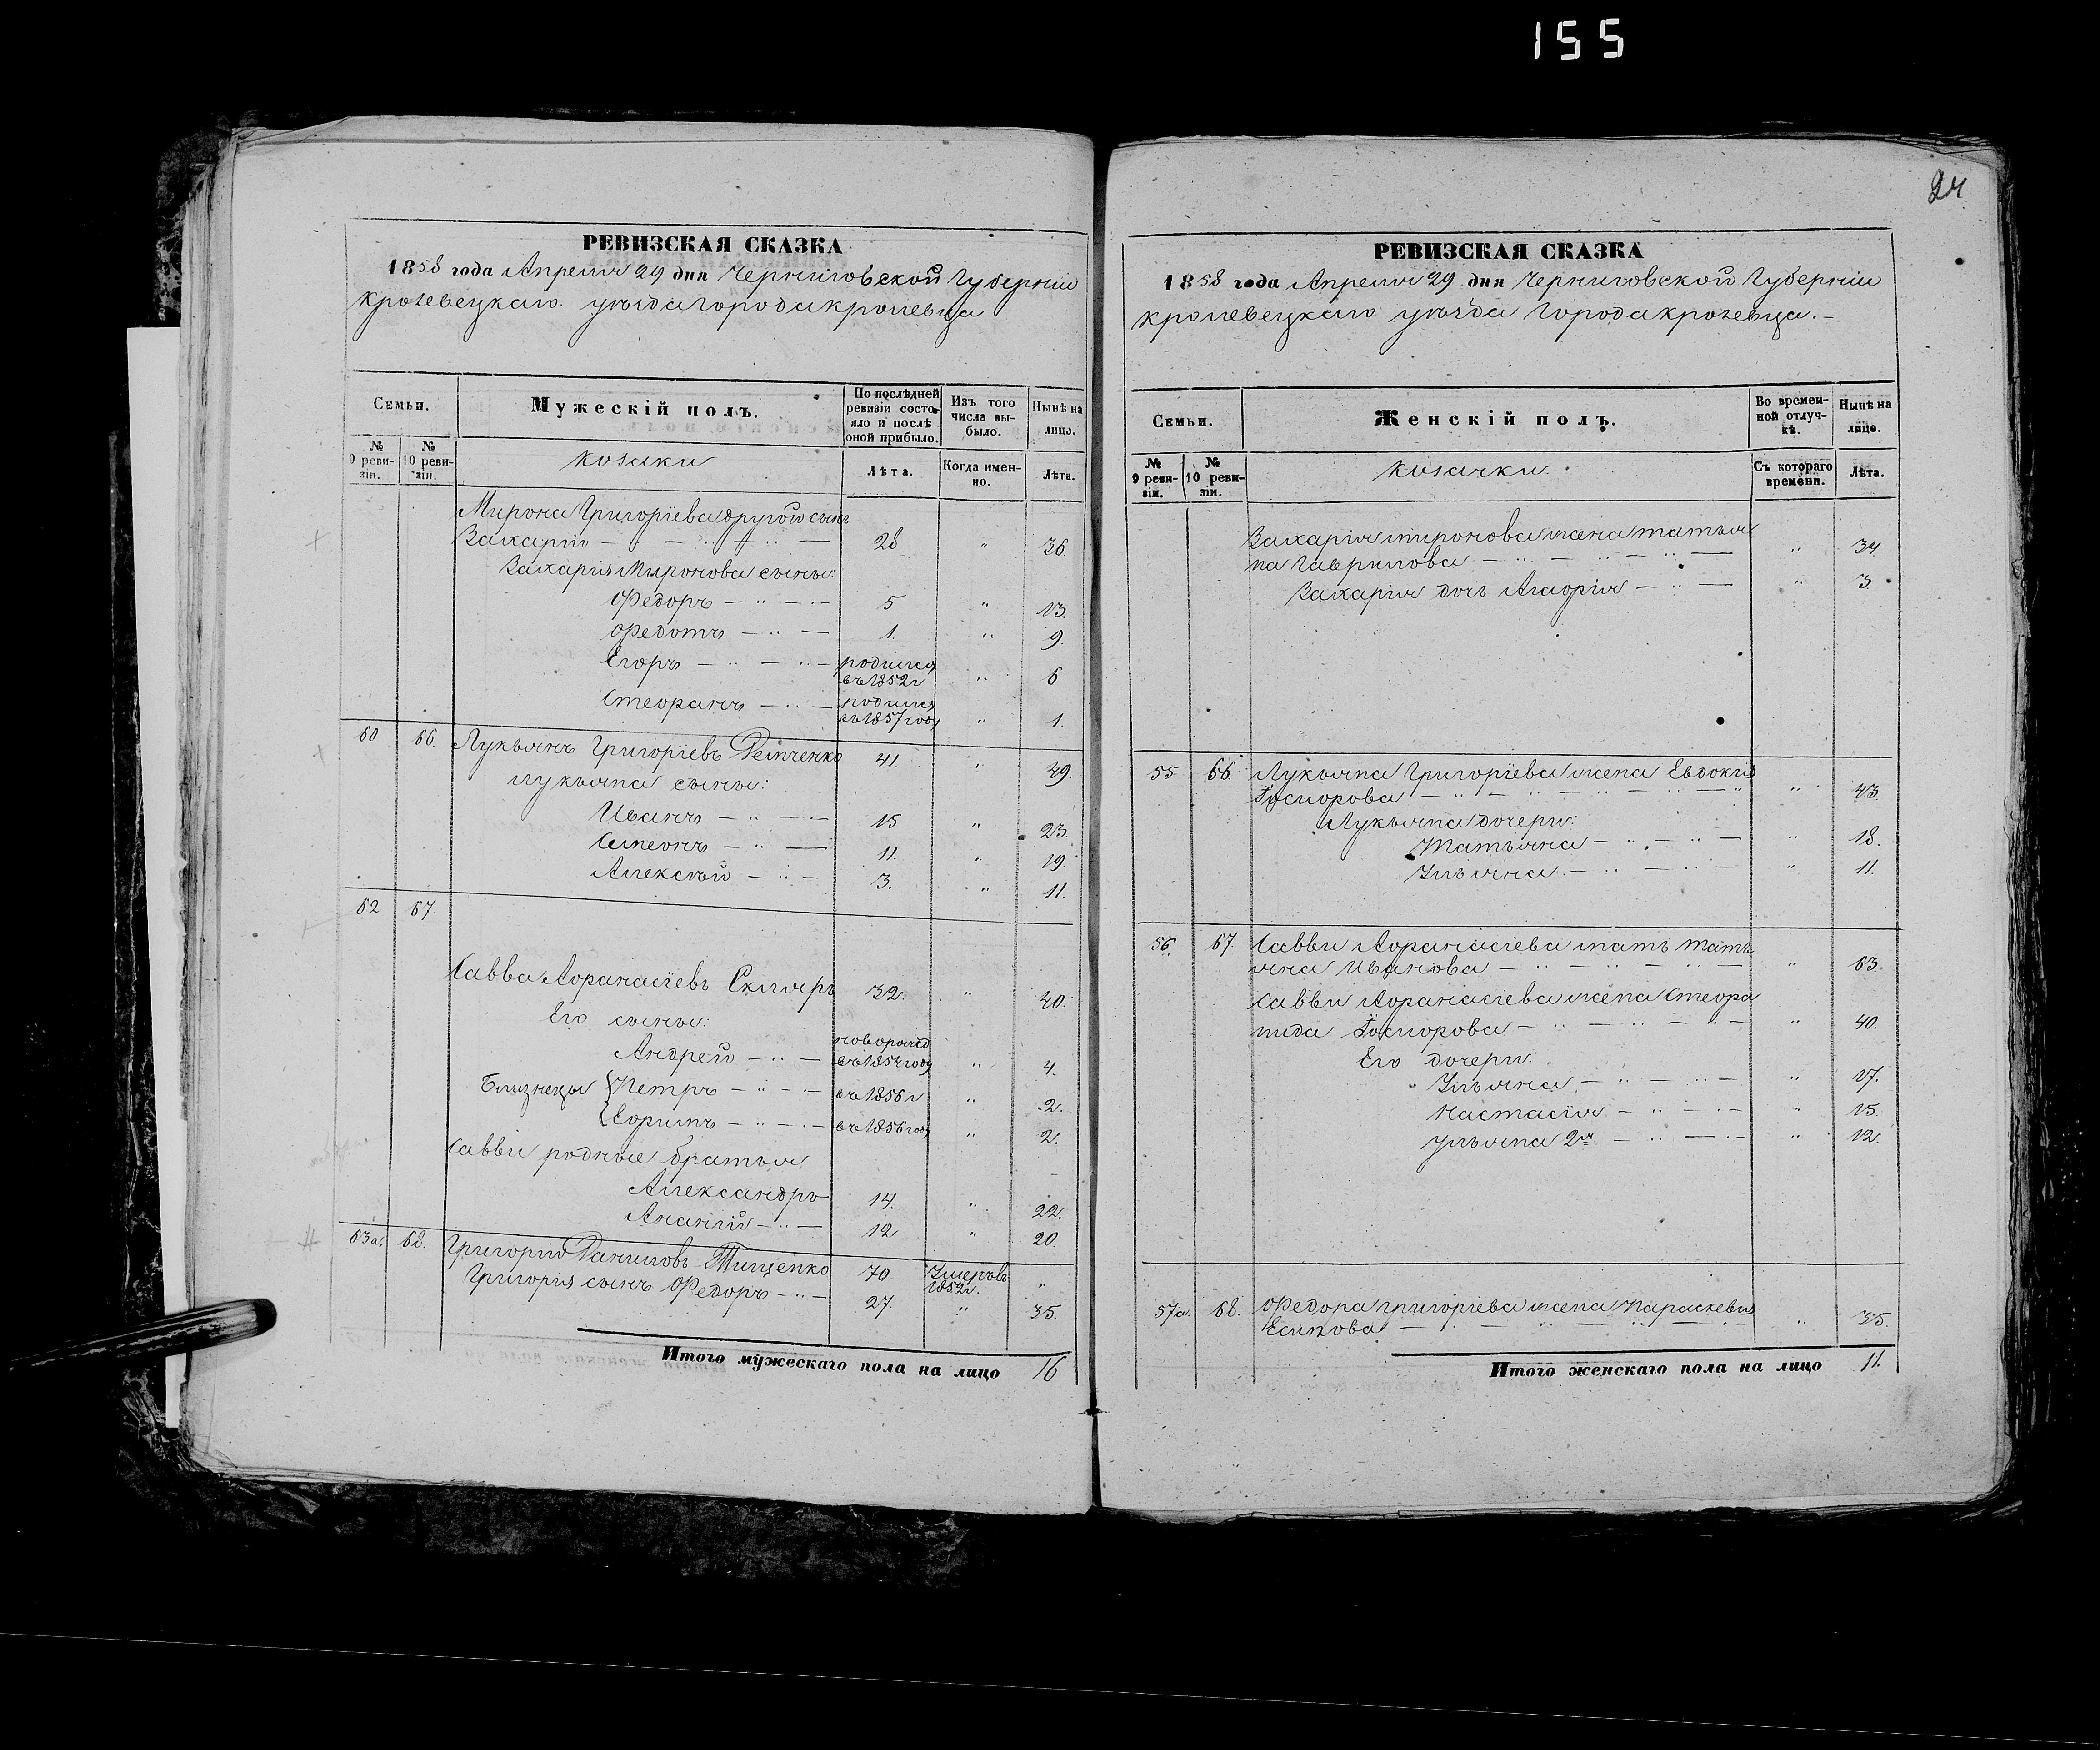 155
РЕВИЗСКАЯ СКАЗКА
1858 года Апреля 29 дня Черниговской Губерніи
Кролевецкаго уѣзда города Кролевца
Семьи.
Мужескій полъ.
По послѣдней ревизіи состояло и послѣ оной прибыло.
Изъ того числа выбыло.
Нынѣ на лицо.
№ 9 ревизіи.
№ 10 ревизіи.
козаки
Лѣта.
Когда именно.
Лѣта.
Мирона Григоріева другой сынъ
Захарій 28 " 36.
Захарія Миронова сыны:
Федоръ 5 " 13.
Федотъ 1. " 9.
Егоръ родился въ 1852 г " 6
Стефанъ родился въ 1857 году " 1.
60 66. Лукьянъ Григоріевъ 41. " 49.
Лукьяна сыны:
Иванъ 15 " 23.
Семенъ 11. " 19.
Алексѣй 3. " 11.
62 67.
Савва Афанасіевъ Скляръ 32. " 40.
Его сыны:
Андрей новорожд. въ 1854 году " 4.
Близнецы Петръ въ 1856 г " 2.
Ефимъ въ 1856 году " 2.
Саввы родные братья
Александръ 14. " 22.
Ананій 12 " 20.
63а. 68. Григорій Даниловъ Тищенко 70 Умеръ въ 1852 г. "
Григорія сынъ Федоръ 27. " 35.
Итого мужескаго пола на лицо 16
24
РЕВИЗСКАЯ СКАЗКА
1858 года Апреля 29 дня Черниговской Губерніи
Кролевецкаго уѣзда Города Кролевца.
Семьи.
Женскій полъ.
Во временной отлучкѣ.
Нынѣ на лицо.
№ 9 ревизіи.
№ 10 ревизіи.
козачки.
Съ котораго времени.
Лѣта.
Захарія Миронова жена Татья
на Гаврилова " 34.
Захарія дочь " 3.
55 66. Лукьяна Григоріева жена Евдокія
" 43.
Лукьяна дочери:
Татьяна " 18.
Ульяна " 11.
56. 67. Саввы Афанасіева мать Тать
яна Иванова " 63.
Саввы Афанасіева жена Стефа
нида " 40.
Его дочери:
Ульяна " 17.
Настасія " 15.
Ульяна 2я " 12.
57а. 68. Федора Григоріева жена Параскевія
" 35.
Итого женскаго пола на лицо 11.